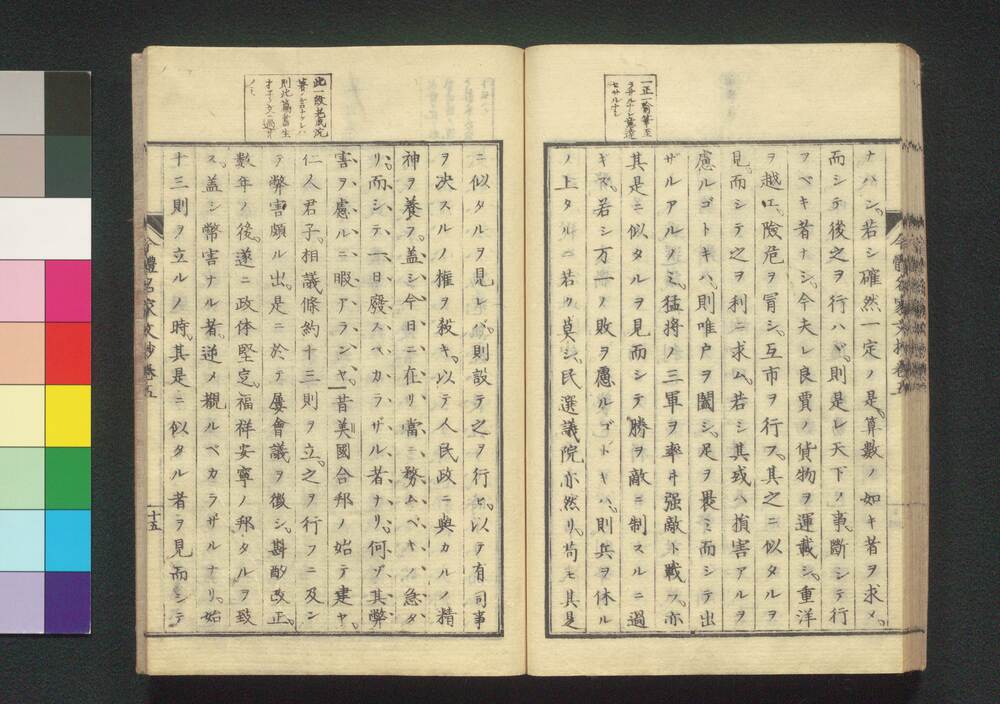 一正一喩筆至
ナハン。若シ確然一定ノ是。算數ノ如キ者ヲ求メ。
而シテ後之ヲ行ハヾ。則是レ天下ノ事。斷シテ行
フベキ者ナシ。今夫レ良賈ノ貨物ヲ運載シ。重洋
ヲ越エ。險危ヲ冒シ。互市ヲ行フ。其之ニ似タルヲ
見。而シテ之ヲ利ニ求ム。若シ其或ハ損害アルヲ
慮ルゴトキハ。則唯戸ヲ闔シ。足ヲ畏ミ而シテ出
ザルアルノミ。猛將ノ三軍ヲ率ヰ强敵ト戰フ。亦
其是ニ似タルヲ見而シテ勝ヲ敵ニ制スルニ過
ギズ。若シ万一ノ敗ヲ慮ルゴトキハ。則兵ヲ休ル
ノ上タルニ若クハ莫シ。民選議院亦然リ。苟モ其是
今體名家文抄卷五
ニ似タルヲ見レバ。則設テ之ヲ行ヒ。以テ有司事
ヲ决スルノ權ヲ殺キ。以テ人民政ニ與カルノ精
神ヲ養フ。盖シ今日ニ在リ當ニ務ムベキノ急タ
リ。而シテ一日廢スベカラザル者ナリ。何ゾ其弊
害ヲ慮ルニ暇アランヤ。昔美國合邦ノ始テ建ヤ。
仁人君子。相議條約十三則ヲ立。之ヲ行フニ及ン
テ弊害頗ル出。是ニ於テ屢會議ヲ徴シ。斟酌改正。
數年ノ後。遂ニ政体堅定。福祥安寧ノ邦タルヲ致
ス。盖シ幣害ナル者。逆メ覩ルベカラザルナリ。始
十三則ヲ立ルノ時。其是ニ似タル者ヲ見而シテ
今體名家文抄卷五
十五